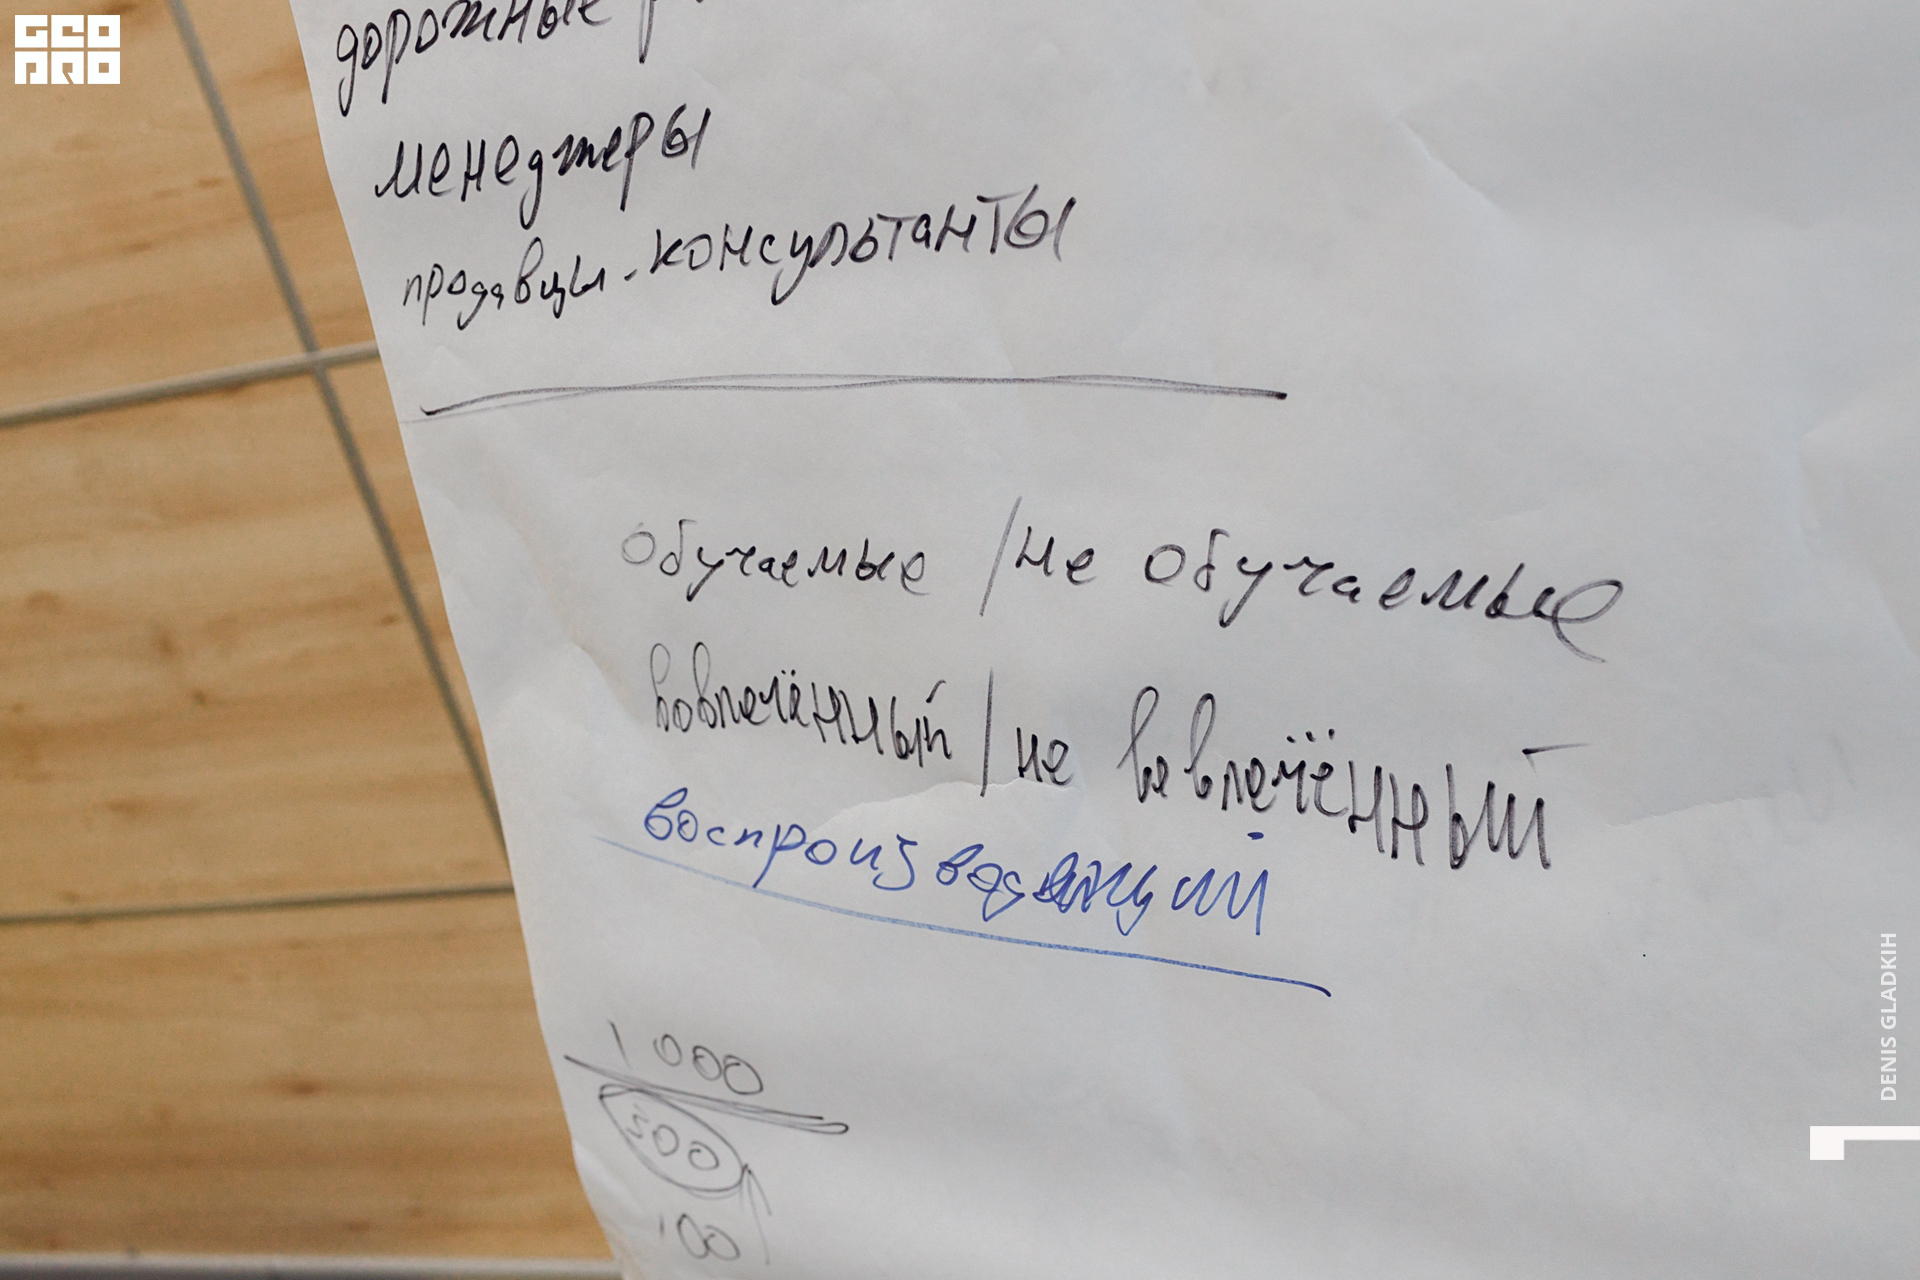 GEO
PRO
дорожные
менеджеры
продавцы-консультанты
обучаемые / не обучаемые
вовлечённый / не вовлечённый
воспроизводящий
1000
500
100
DENIS GLADKIH